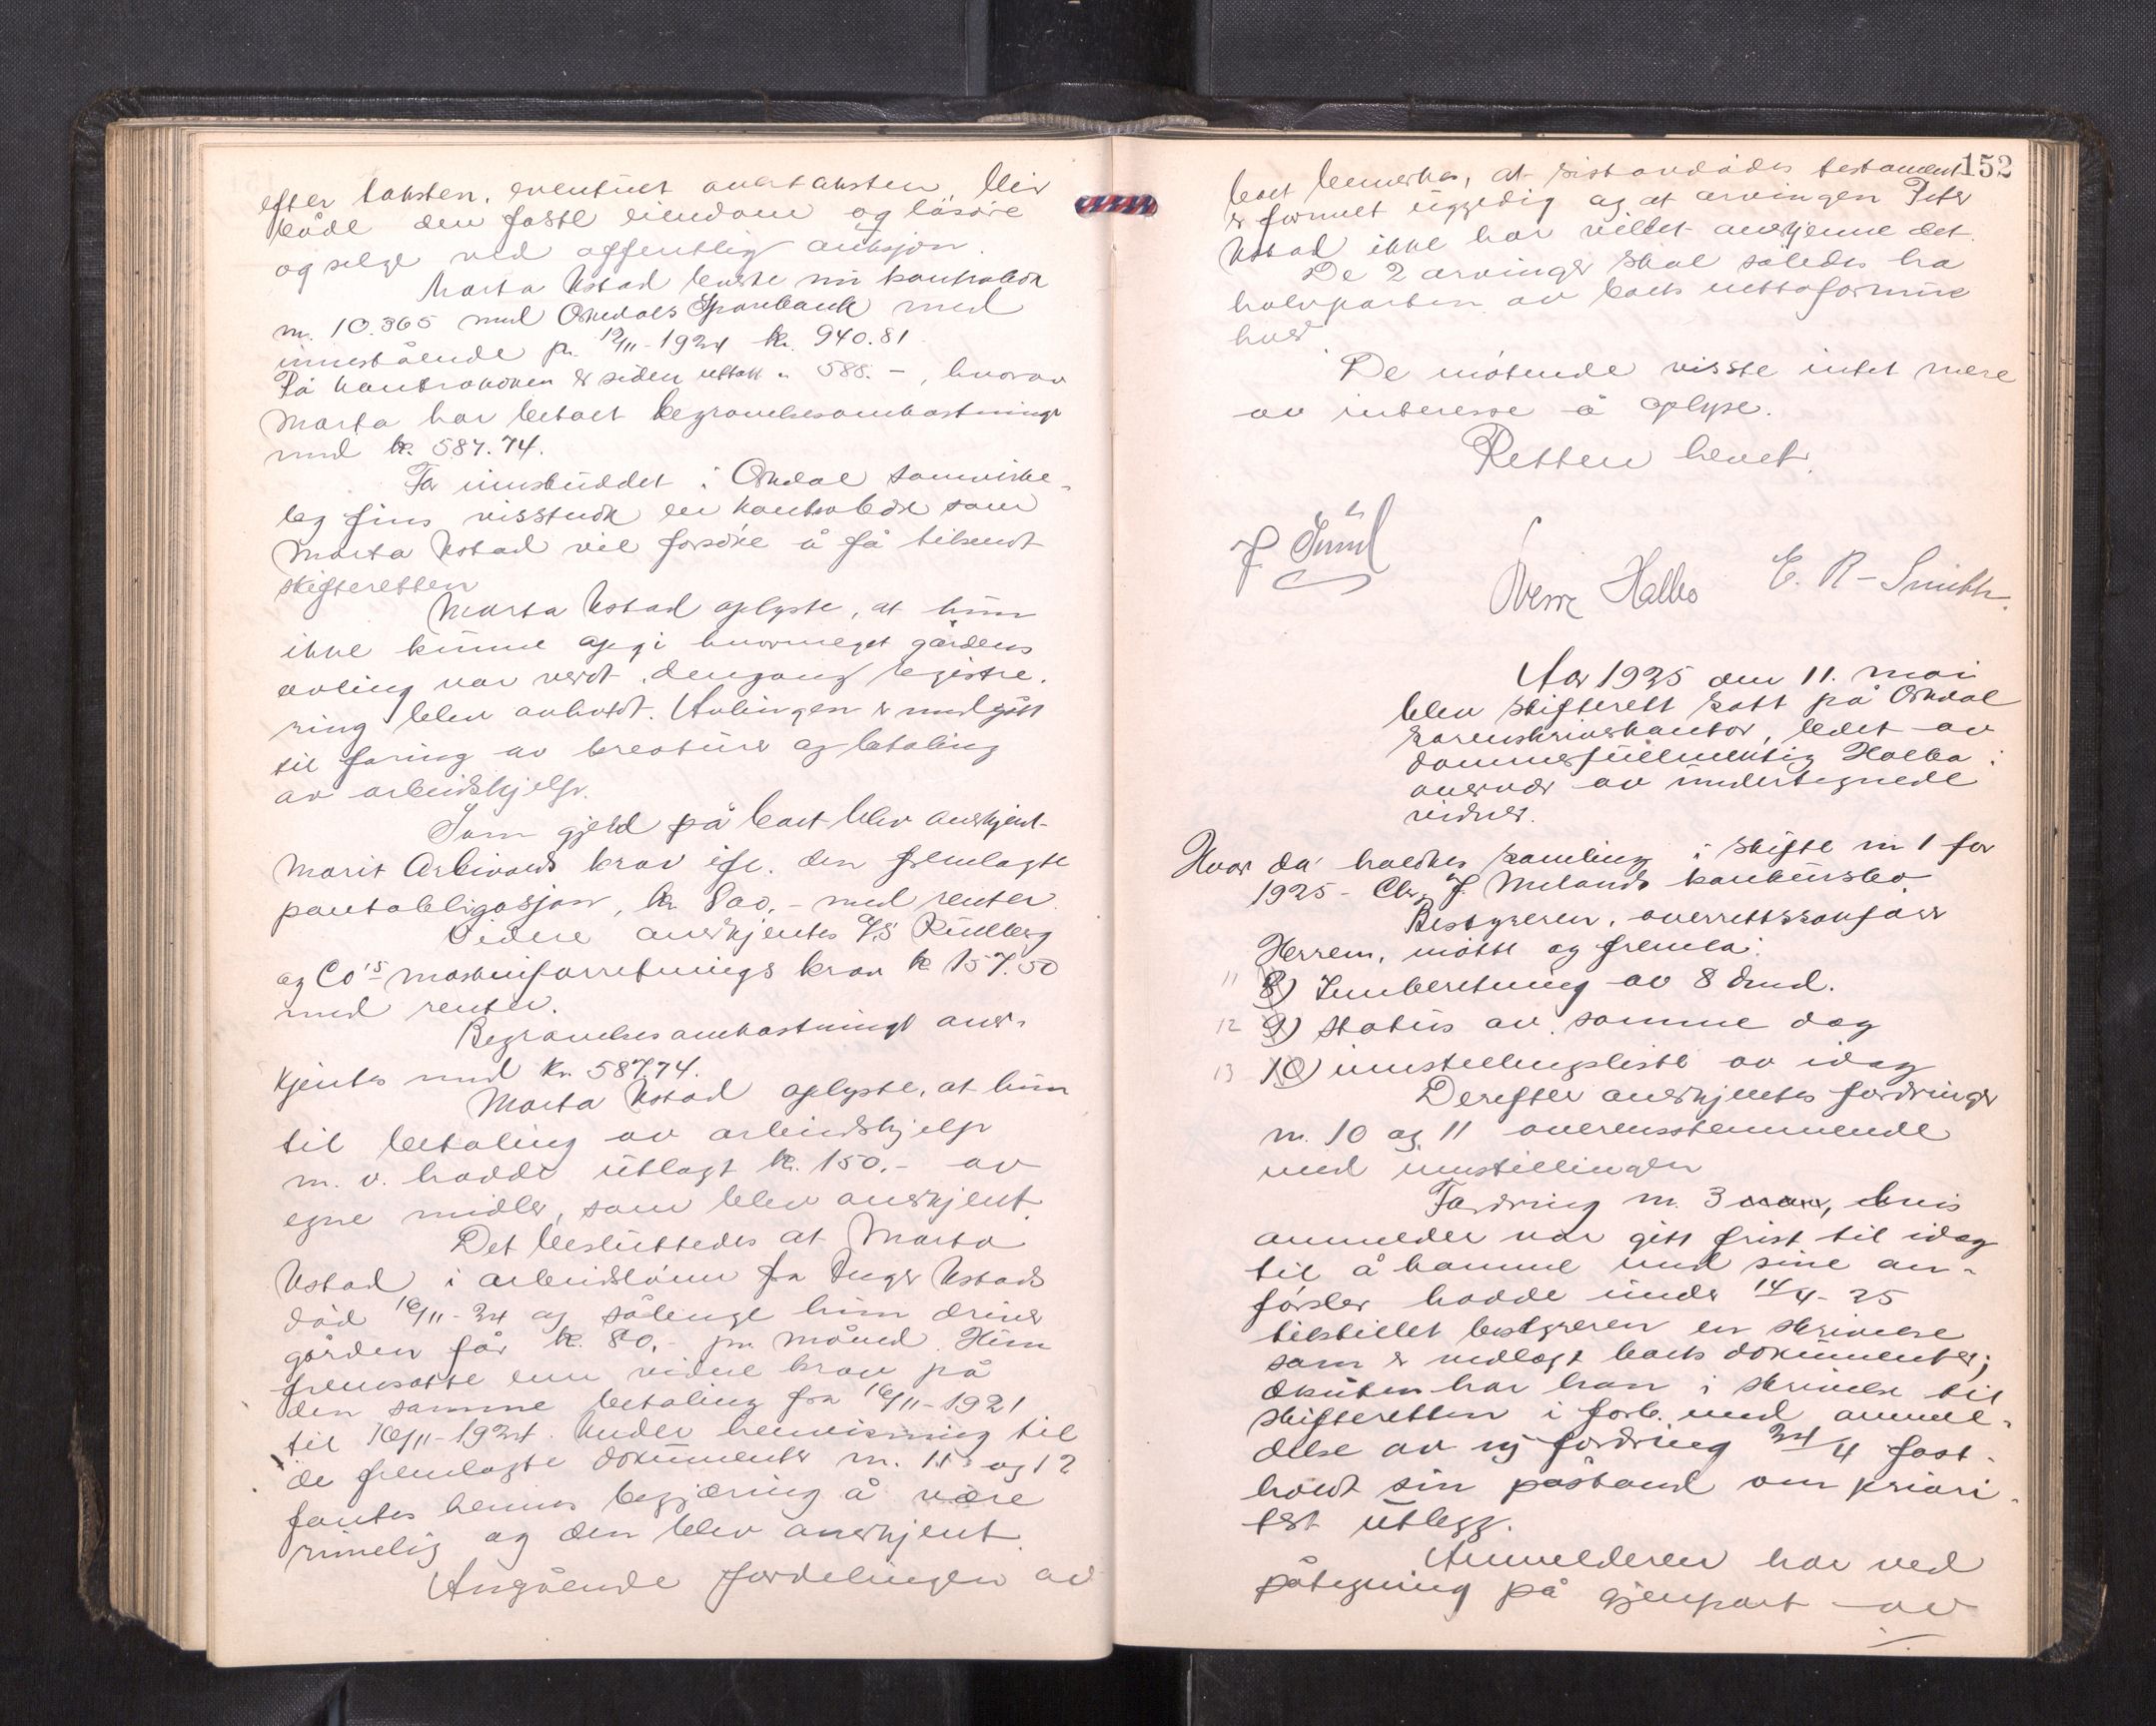 efter taksten, eventuelt overtaksten, blir
både den faste eiendom og løsøre
og selge ved offentlig auksjon.
Marta Ustad leverte nu kontrabok
nr. 10.365 med Orkedals Sparebank med
innestående pr. 12/11-1924 kr. 940.81
På kontraboken er siden uttatt " 588.-, hvorav
Marta har betalt begravelsesomkostninger
med kr. 587.74.
For innskuddet i Orkdal samvirke-
lag fins visstnok en kontrabok som
Marta Ustad vil forsøke å få tilsendt
skifteretten
Marta Ustad oplyste, at hun
ikke kunne opgi hvormeget gårdens
avling var verdt, dengang registre-
ring blev avholdt. Avlingen er medgått
til foring av kreaturer og betaling
av arbeidshjelp.
Som gjeld på boet blev anerkjent
Marit Arlivolds krav ifl. den fremlagte
pantobligasjon, kr. 800,- med renter.
Videre anerkjentes A/S Rudberg
og Co's maskinforretnings krav kr. 157.50
med renter.
Begravelsesomkostninger aner-
kjentes med kr. 587.74.
Marta Ustad oplyste, at hun
til betaling av arbeidshjelp
m. v. hadde utlagt kr. 150.- av
egne midler, som blev anerkjent.
Det besluttedes at Marta
Ustad i arbeidslønn fra Inger Ustads
død 16/11-24 og sålenge hun driver
gården får kr. 80,- pr. måned. Hun
fremsatte enn videre krav på
den samme betaling fra 16/11-1921
til 16/11-1924. Under henvisning til
de fremlagte dokumenter nr. 11 og 12
fantes hennes begjæring å være
rimelig og den blev anerkjent.
Angående fordelingen av
152
boet bemerkes, at sistavdødes testament
er formelt ugyldig og at arvingen Peter
Ustad ikke har villet anerkjenne det.
De 2 arvinger skal således ha
halvparten av boets nettoformue
hver.
De møtende visste intet mere
av interesse å oplyse.
Retten hevet.
Halbo E. R-Smith.
Aar 1925 den 11. mai
blev skifterett satt på Orkdal
sorenskriverkontor, ledet av
dommerfullmektig Halbo i
overvær av undertegnede
vidner.
Hvor da holdtes samling i skifte nr 1 for
1925 - Chr. J. Melands konkursbo.
Bestyreren, overrettssakfører
Herrem, møtte og fremla:
11 8) Innberetning av 8 dnd.
12 9) status av samme dag
13 10) innstillingsliste av idag
Derefter anerkjentes fordringer
nr. 10 og 11 overensstemmende
med innstillingen
Fordring nr. 3 , hvis
anmelder var gitt frist til idag
til å komme med sine an-
førsler hadde under 14/4-25
tilstillet bestyreren en skrivelse
som er vedlagt boets dokumenter;
dessuten har han i skrivelse til
skifteretten i forb. med anmel-
delse av ny fordring 24/4 fast-
holdt sin påstand om priori-
tert utlegg.
Anmelderen har ved
påtegning på gjenpart av
./.